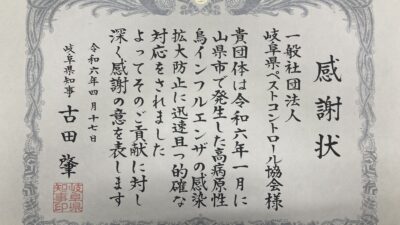 感謝状
一般社団法人
岐阜県ペストコントロール協会様
貴団体は令和六年一月に
山県市で発生した高病原性
鳥インフルエンザの感染
拡大防止に迅速且つ的確な
対応をされました
よってそのご貢献に対し
深く感謝の意を表します
令和六年四月十七日
岐阜県知事 古田 肇
岐阜県
知事印